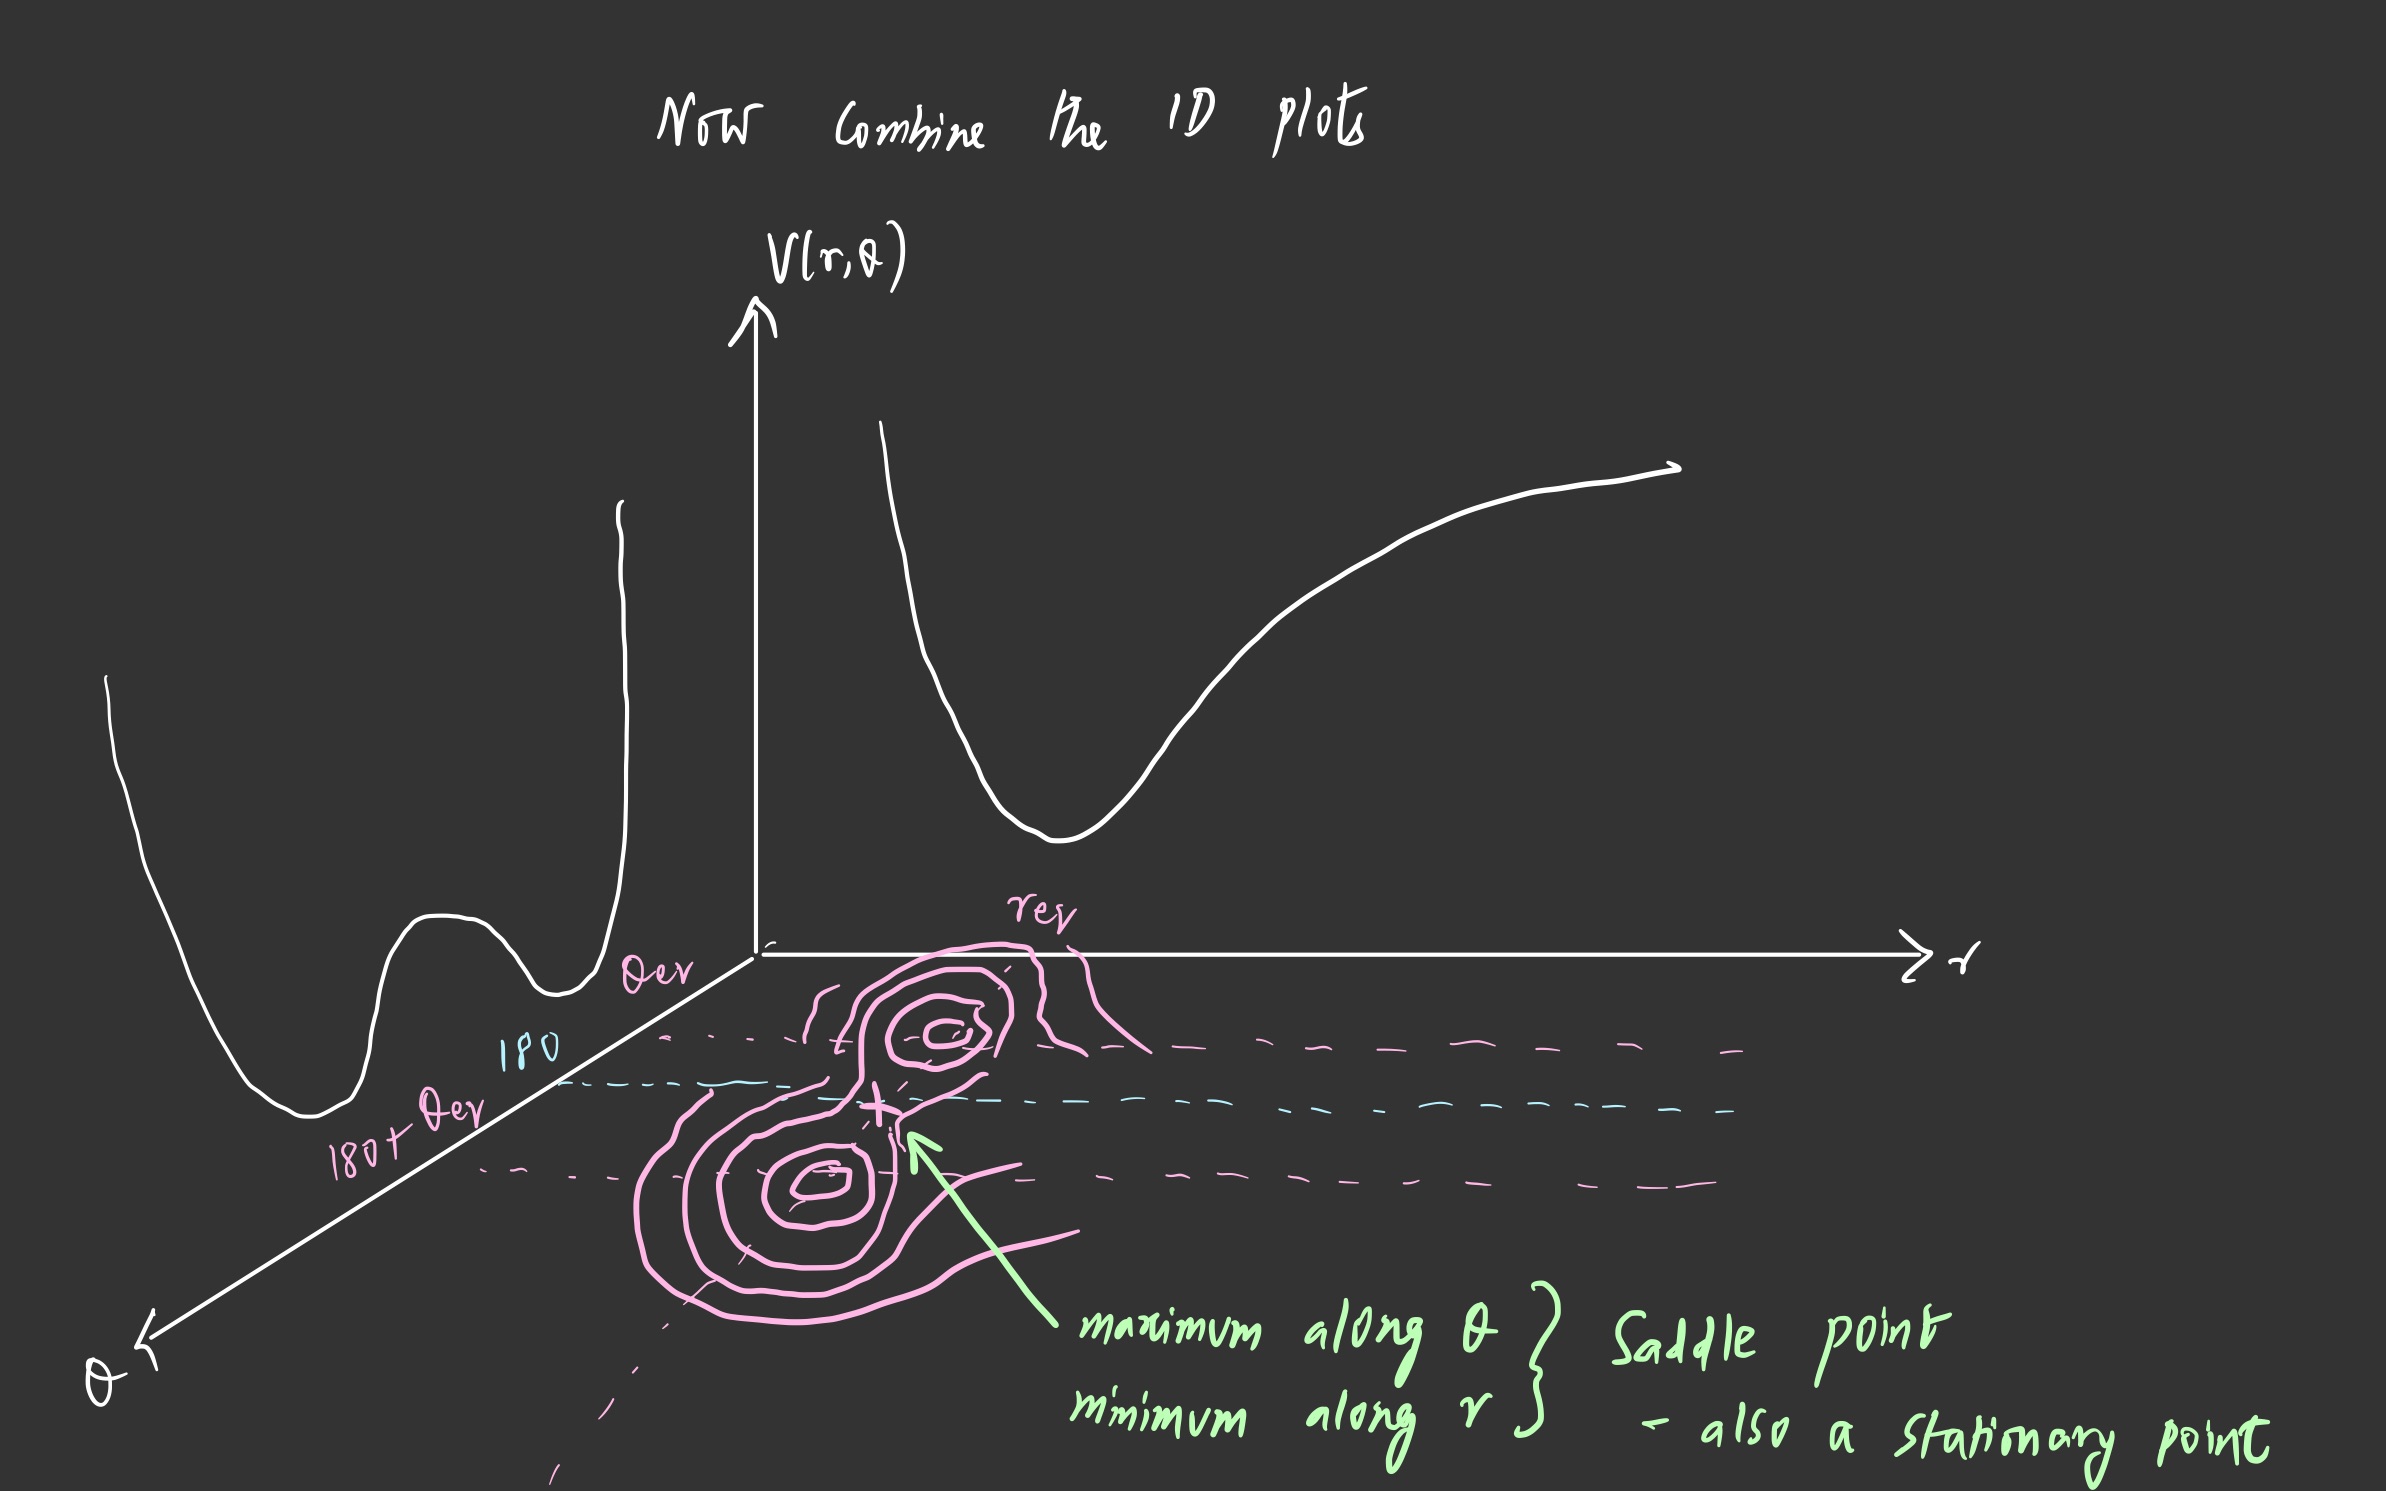 Now Combine the 1D plots
V(r,θ)
req
θeq
r
180
180+θeq
θ
maximum along θ
minimum along r
Saddle point
- also a stationary point